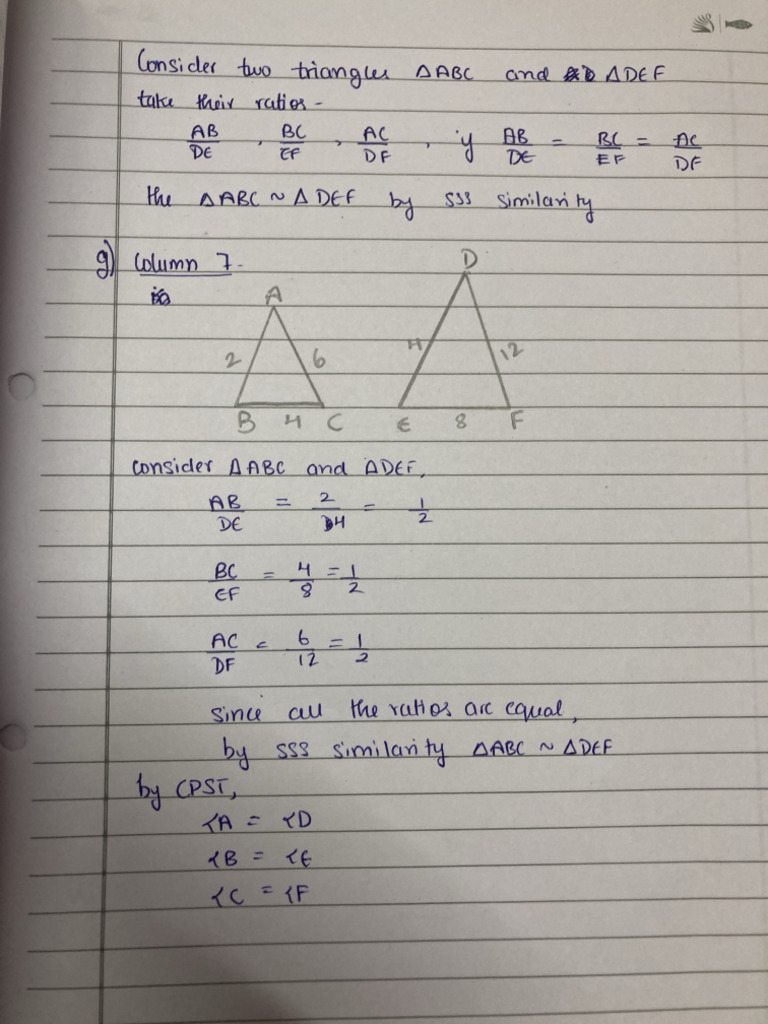 Consider two triangles △ABC and △DEF
take their ratios -
AB/DE , BC/EF , AC/DF , if AB/DE = BC/EF = AC/DF
the △ABC ~ △DEF by SSS similarity
g) Column 7 -
A D
2 6 4 12
B 4 C E 8 F
Consider △ABC and △DEF,
AB/DE = 2/4 = 1/2
BC/EF = 4/8 = 1/2
AC/DF = 6/12 = 1/2
since all the ratios are equal,
by SSS similarity △ABC ~ △DEF
by CPST,
∠A = ∠D
∠B = ∠E
∠C = ∠F